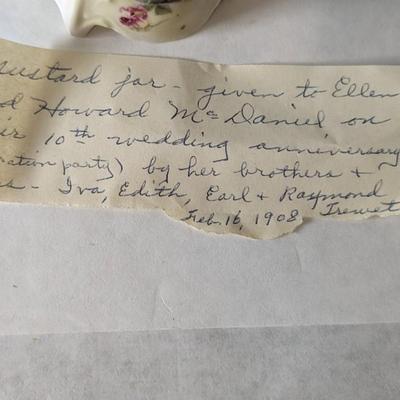 mustard jar - given to Ellen
d Howard McDaniel on
ir 10th wedding anniversary
ation party) by her brothers +
s - Iva, Edith, Earl + Raymond
Feb. 16, 1908 Trewet